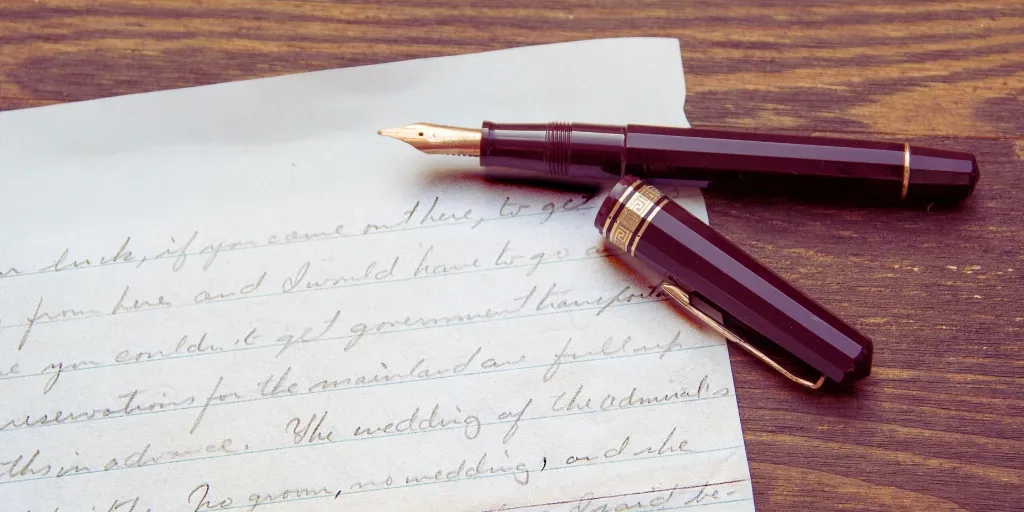 luck, if you came out here, to get
from here and I would have to go
you couldn't get government transporta
reservations for the mainland are full up
ths in advance. The wedding of the admiral's
No groom, no wedding, and she
be-